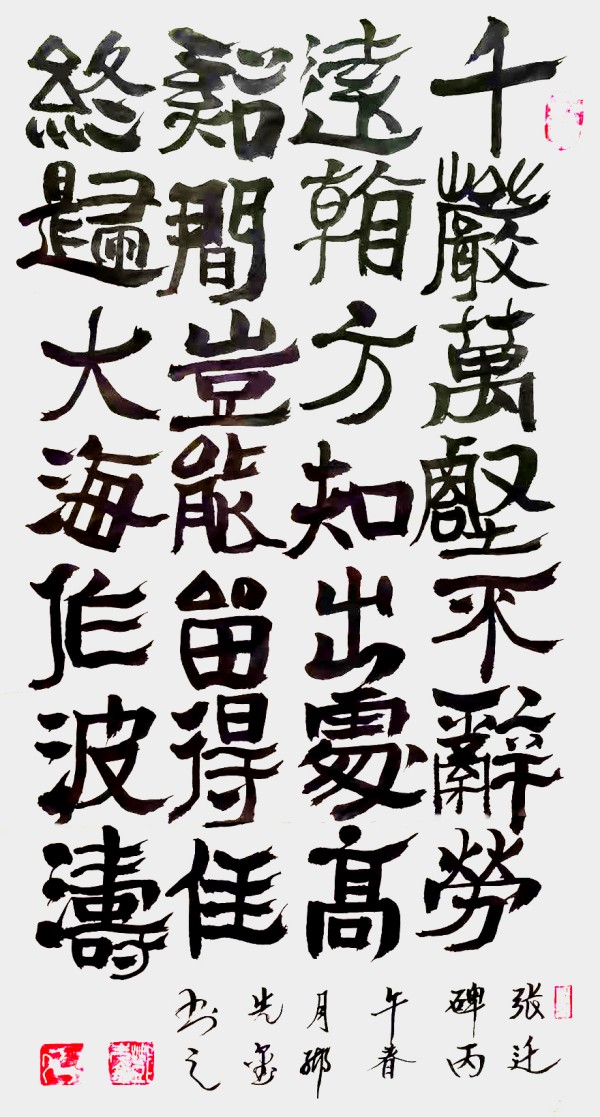 千巖萬壑不辭勞
遠看方知出處高
谿澗豈能留得住
終歸大海作波濤
張迁
碑丙
午春
月
先
书之